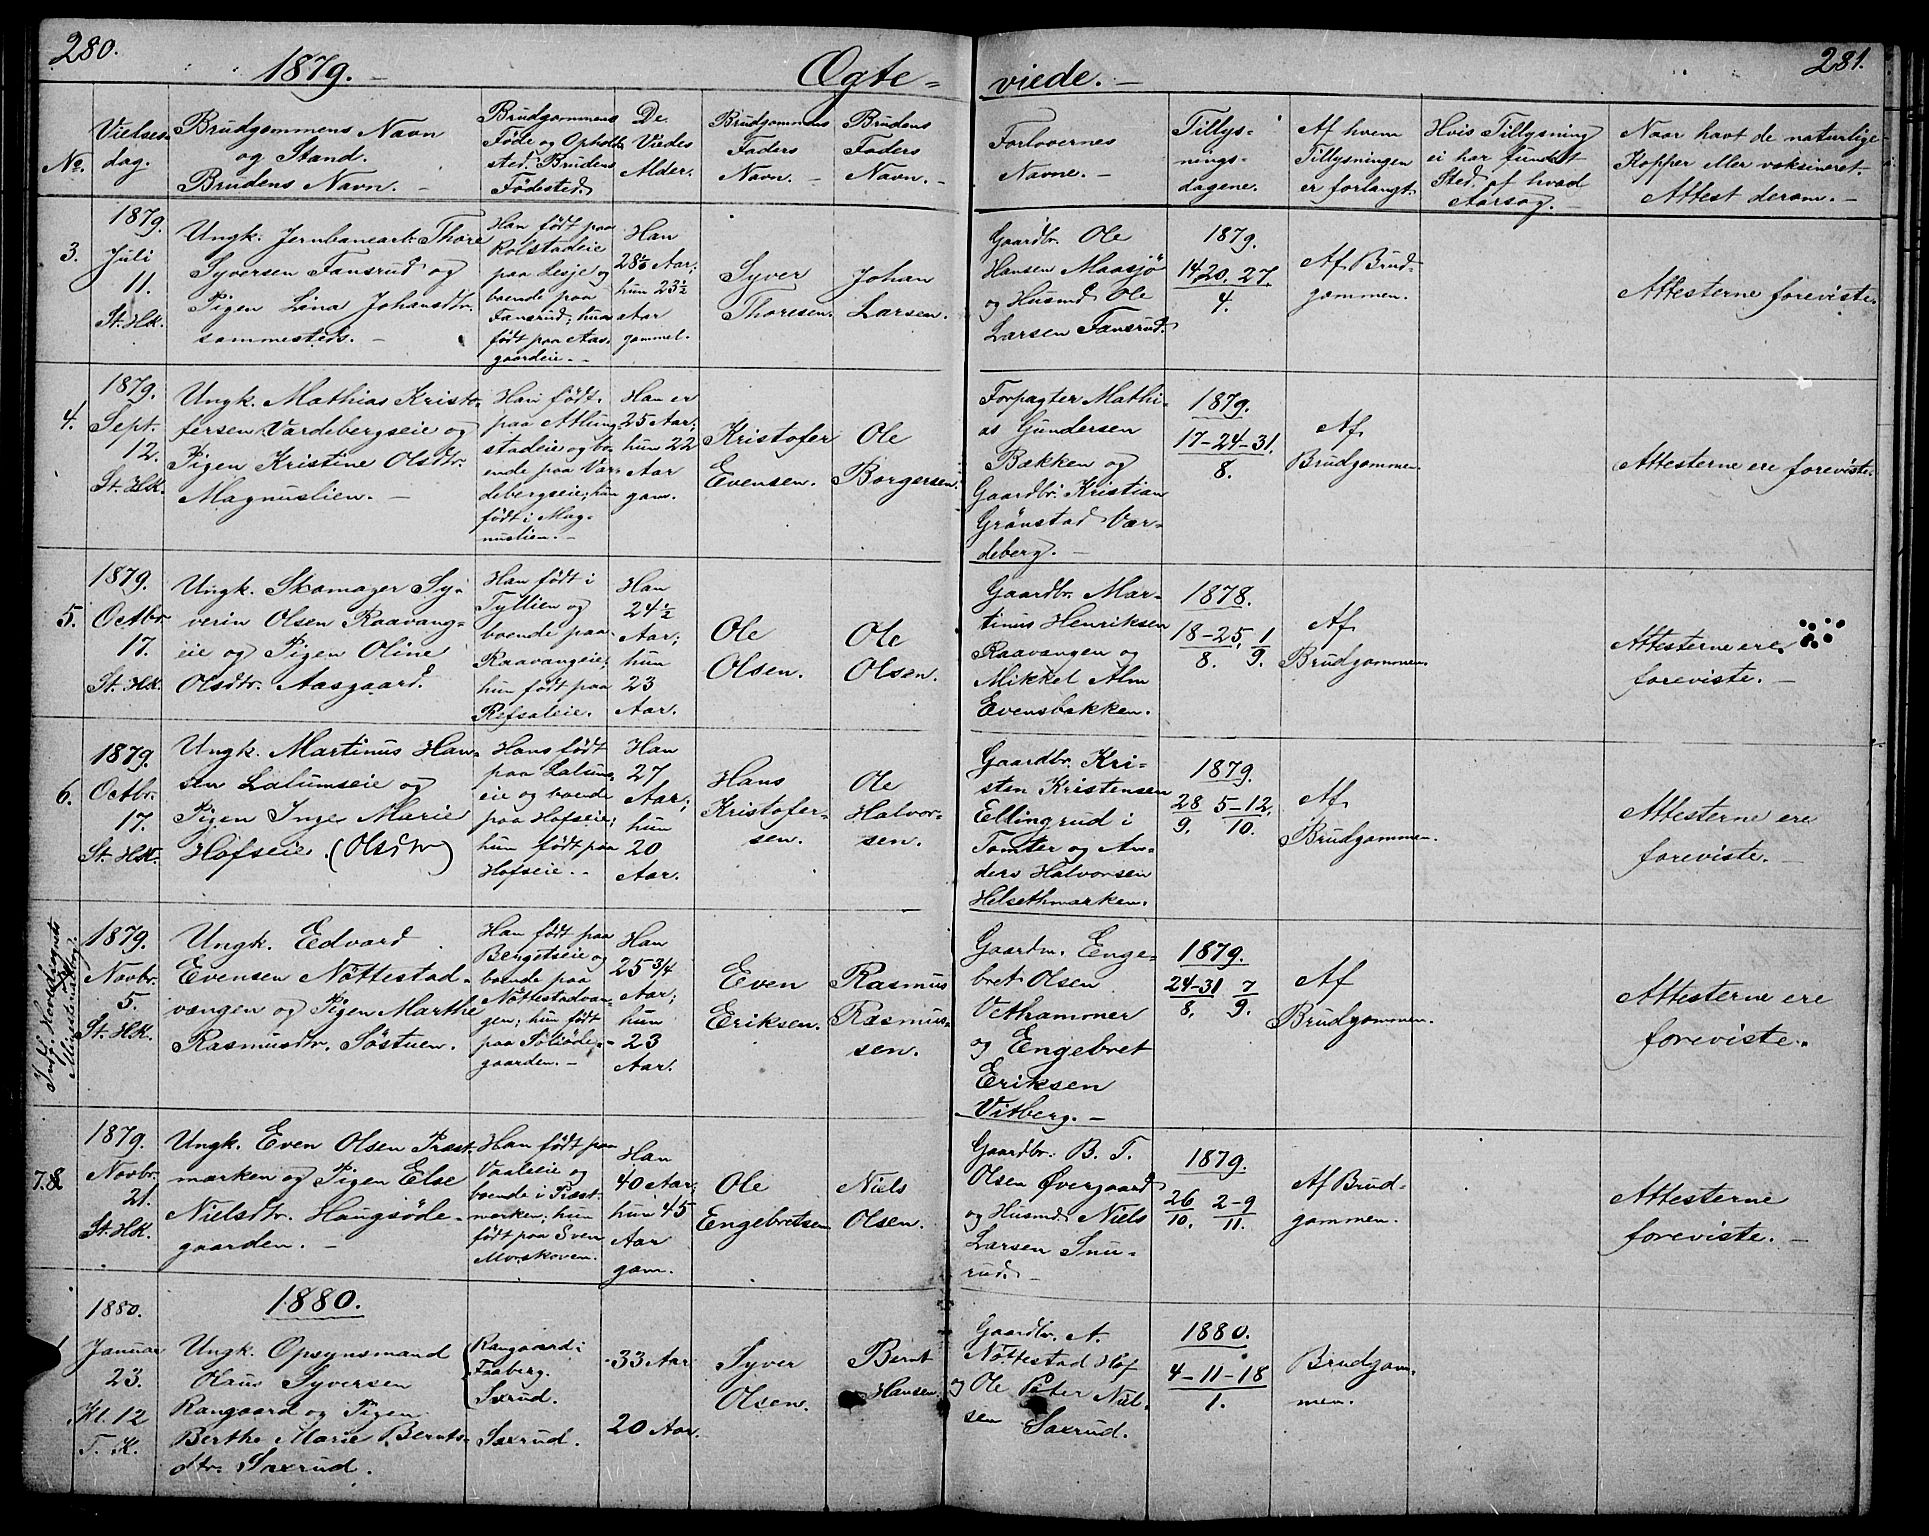 280.
1879. –
Ægte=
viede. –
281.
No.
Vielses=
dag.
Brudgommens Navn
og Stand.
Brudens Navn. –
Brudgommens
Føde og Opholds
sted. Brudens
Fødested.
De
Viedes
Alder.
Brudgommens
Faders
Navn. –
Brudens
Faders
Navn. –
Forlovernes
Navne. –
Tillys=
nings=
dagene.
Af hvem
Tillysningen
er forlangt.
Hvis Tillysning
ei har fundet
Sted, af hvad
Aarsag.
Naar havt de naturlige
Kopper eller vaksineret.
Attest derom. –
3.
1879.
Juli
11.
St. HK.
Ungk. Jernbanearb. Thore
Syversen Fansrud og
Pigen Lina Johansdtr.
sammesteds. –
Han født paa
Rolstadeie
paa Lesje og
boende paa
Fansrud; hun
født paa Aas=
gaardeie. –
Han
Aar;
hun 23½
Aar
gammel.
Syver
Thoresen.
Johan
Larsen.
Gaardbr. Ole
Hansen Maasjø
og Husmd. Ole
Larsen Fansrud.
1879.
14 20. 27.
4.
Af Brud=
gommen.
Attesterne foreviste.
4.
1879.
Sept.
12.
St. HK.
Ungk. Mathias Kristo=
fersen Vardebergseie og
Pigen Kristine Olsdtr.
Magnuslien. –
Han født
paa Atlung=
stadeie og bo=
ende paa Var=
debergseie; hun
født i Mag=
nuslien. –
Han er
25 Aar;
hun 22
Aar
gam.
Kristofer
Evensen.
Ole
Borgersen.
Forpagter Mathi=
as Gundersen
Bækken og
Gaardbr. Kristian
Grønstad Var=
deberg. –
1879.
17–24–31.
8.
Af
Brudgommen.
Attesterne ere foreviste.
5.
1879.
Octbr.
17.
St. HK.
Ungk. Skomager Sy=
verin Olsen Raavang=
eie og Pigen Oline
Olsdtr. Aasgaard.
Han født i
Tyllien og
boende paa
Raavangeie;
hun født paa
Refsaleie.
Han
24½
Aar;
hun
23
Aar.
Ole
Olsen.
Ole
Olsen.
Gaardbr. Mar=
tinus Henriksen
Raavangen og
Mikkel Alm
Evensbakken.
1878.
18–25, 1
8. 9.
Af
Brudgommen.
Attesterne ere
foreviste. –
6.
1879.
Octbr.
17.
St. HK.
Ungk. Martinus Han=
sen Lalumseie og
Pigen Inge Marie
Hofseie. (Olsdtr)
Hans født
paa Lalums=
eie og boende
paa Hofseie;
hun født paa
Hofseie. –
Han
27
Aar;
hun
20
Aar.
Hans
Kristofer=
sen.
Ole
Halvor=
sen.
Gaardbr. Kri=
sten Kristensen
Ellingrud i
Tomter og An=
ders Halvorsen
Helsethmarken.
1879.
28 5–12.
9. 10.
Af
Brudgommen.
Attesterne ere
foreviste. –
1879.
Novbr.
5.
St. HK.
Ungk. Edvard
Evensen Nøttestad=
vangen og Pigen Marthe
Rasmusdtr. Søstuen.
Han født paa
Bengetseie og
boende paa
Nøttestadvan=
gen; hun født
paa Søliøde=
gaarden. –
Han
25 3/4
Aar;
hun
23
Aar.
Even
Eriksen.
Rasmus
Rasmus=
sen.
Gaardm. Enge=
bret Olsen
Vethammer
og Engebret
Eriksen
Vitberg. –
1879.
24–31 7
8. 9.
Af
Brudgommen.
Attesterne ere
foreviste.
7.8.
1879.
Novbr.
21.
St. HK.
Ungk. Even Olsen Præst=
marken og Pigen Else
Nielsdtr. Haugsøde=
gaarden. –
Han født paa
Vaaleeie og
boende i Præst=
marken; hun
født paa Sven
Morskoven.
Han
40 Aar;
hun 45
Aar
gam.
Ole
Engebretsen
Niels
Olsen.
Gaardbr. B. T.
Olsen Øvergaard
og Husmd. Niels
Larsen Snu=
rud. –
1879.
26 2–9
10. 11.
Af Brud=
gommen.
Attesterne
foreviste. –
1880.
1
1880.
Januar
23.
Kl. 12
T. K.
Ungk. Opsynsmand
Hans Syversen
Rangaard og Pigen
Berthe Marie Bernts=
dtr. Saxrud.
Rangaard i
Faaberg.
Saxrud.
Saxrud.
33 Aar
20 Aar.
Syver
Olsen.
Bernt
Hansen.
Gaardbr. A.
Nøttestad Hof
og Ole Peter Niel=
sen Saxrud.
1880.
4–11–18
1.
Brudgom=
men.